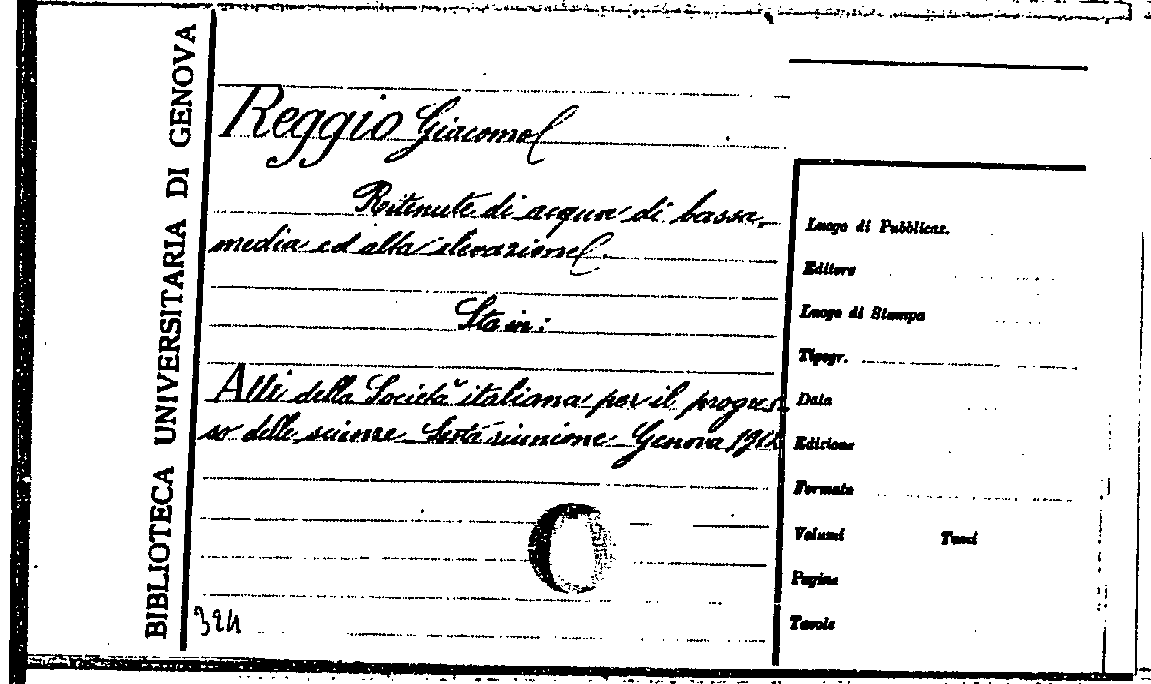 BIBLIOTECA UNIVERSITARIA DI GENOVA
Reggio Giacomo
Ritenute di acqua di bassa,
media ed alta elevazione.
Sta in:
Atti della Società italiana per il progres-
so delle scienze Sesta riunione Genova 1912
324
Luogo di Pubblicaz.
Editore
Luogo di Stampa
Tipogr.
Data
Edizione
Formato
Volumi Tomi
Pagine
Tavole